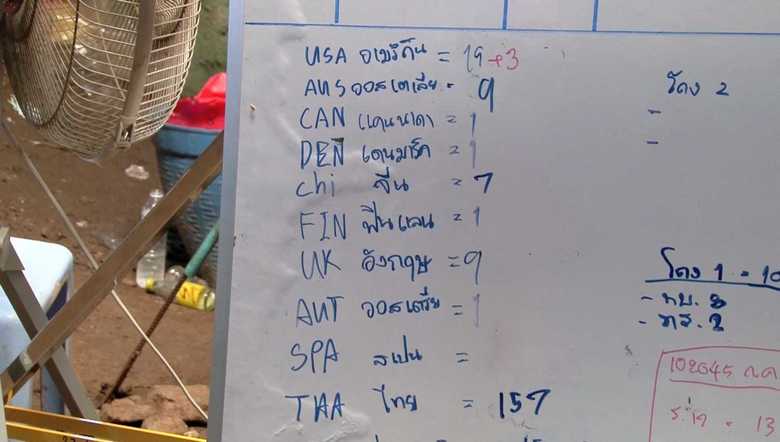 USA อเมริกัน = 19+3
AUS ออสเตเลีย = 9
CAN แคนนาดา = 1
DEN เดนมาร์ค = 1
Chi จีน = 7
FIN ฟินแลน = 1
UK อังกฤษ = 9
AUT ออสเตรีย = 1
SPA สเปน =
THA ไทย = 157
โถง 2
-
-
โถง 1 = 10
- ทบ. 8
- ทร. 2
102045 ก.ค
ร.19 = 13